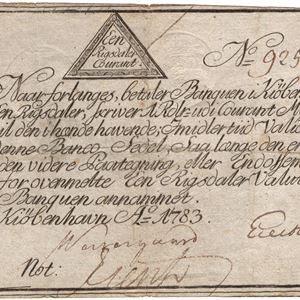 Een
Rigsdaler
Courant
No. 925
Naar forlanges, betaler Banquen i Kiöben
Een Rigsdaler, skriver 1 Rdlr. udi Courant M
til den i hænde havende; Imidlertiid Valide
denne Banco-Sedel, saa længe den er
den videre Paategning, eller Endossem
for ovenmelte Een Rigsdaler Valut
Banquen annammet.
Kiöbenhavn Ao. 1783.
Not: